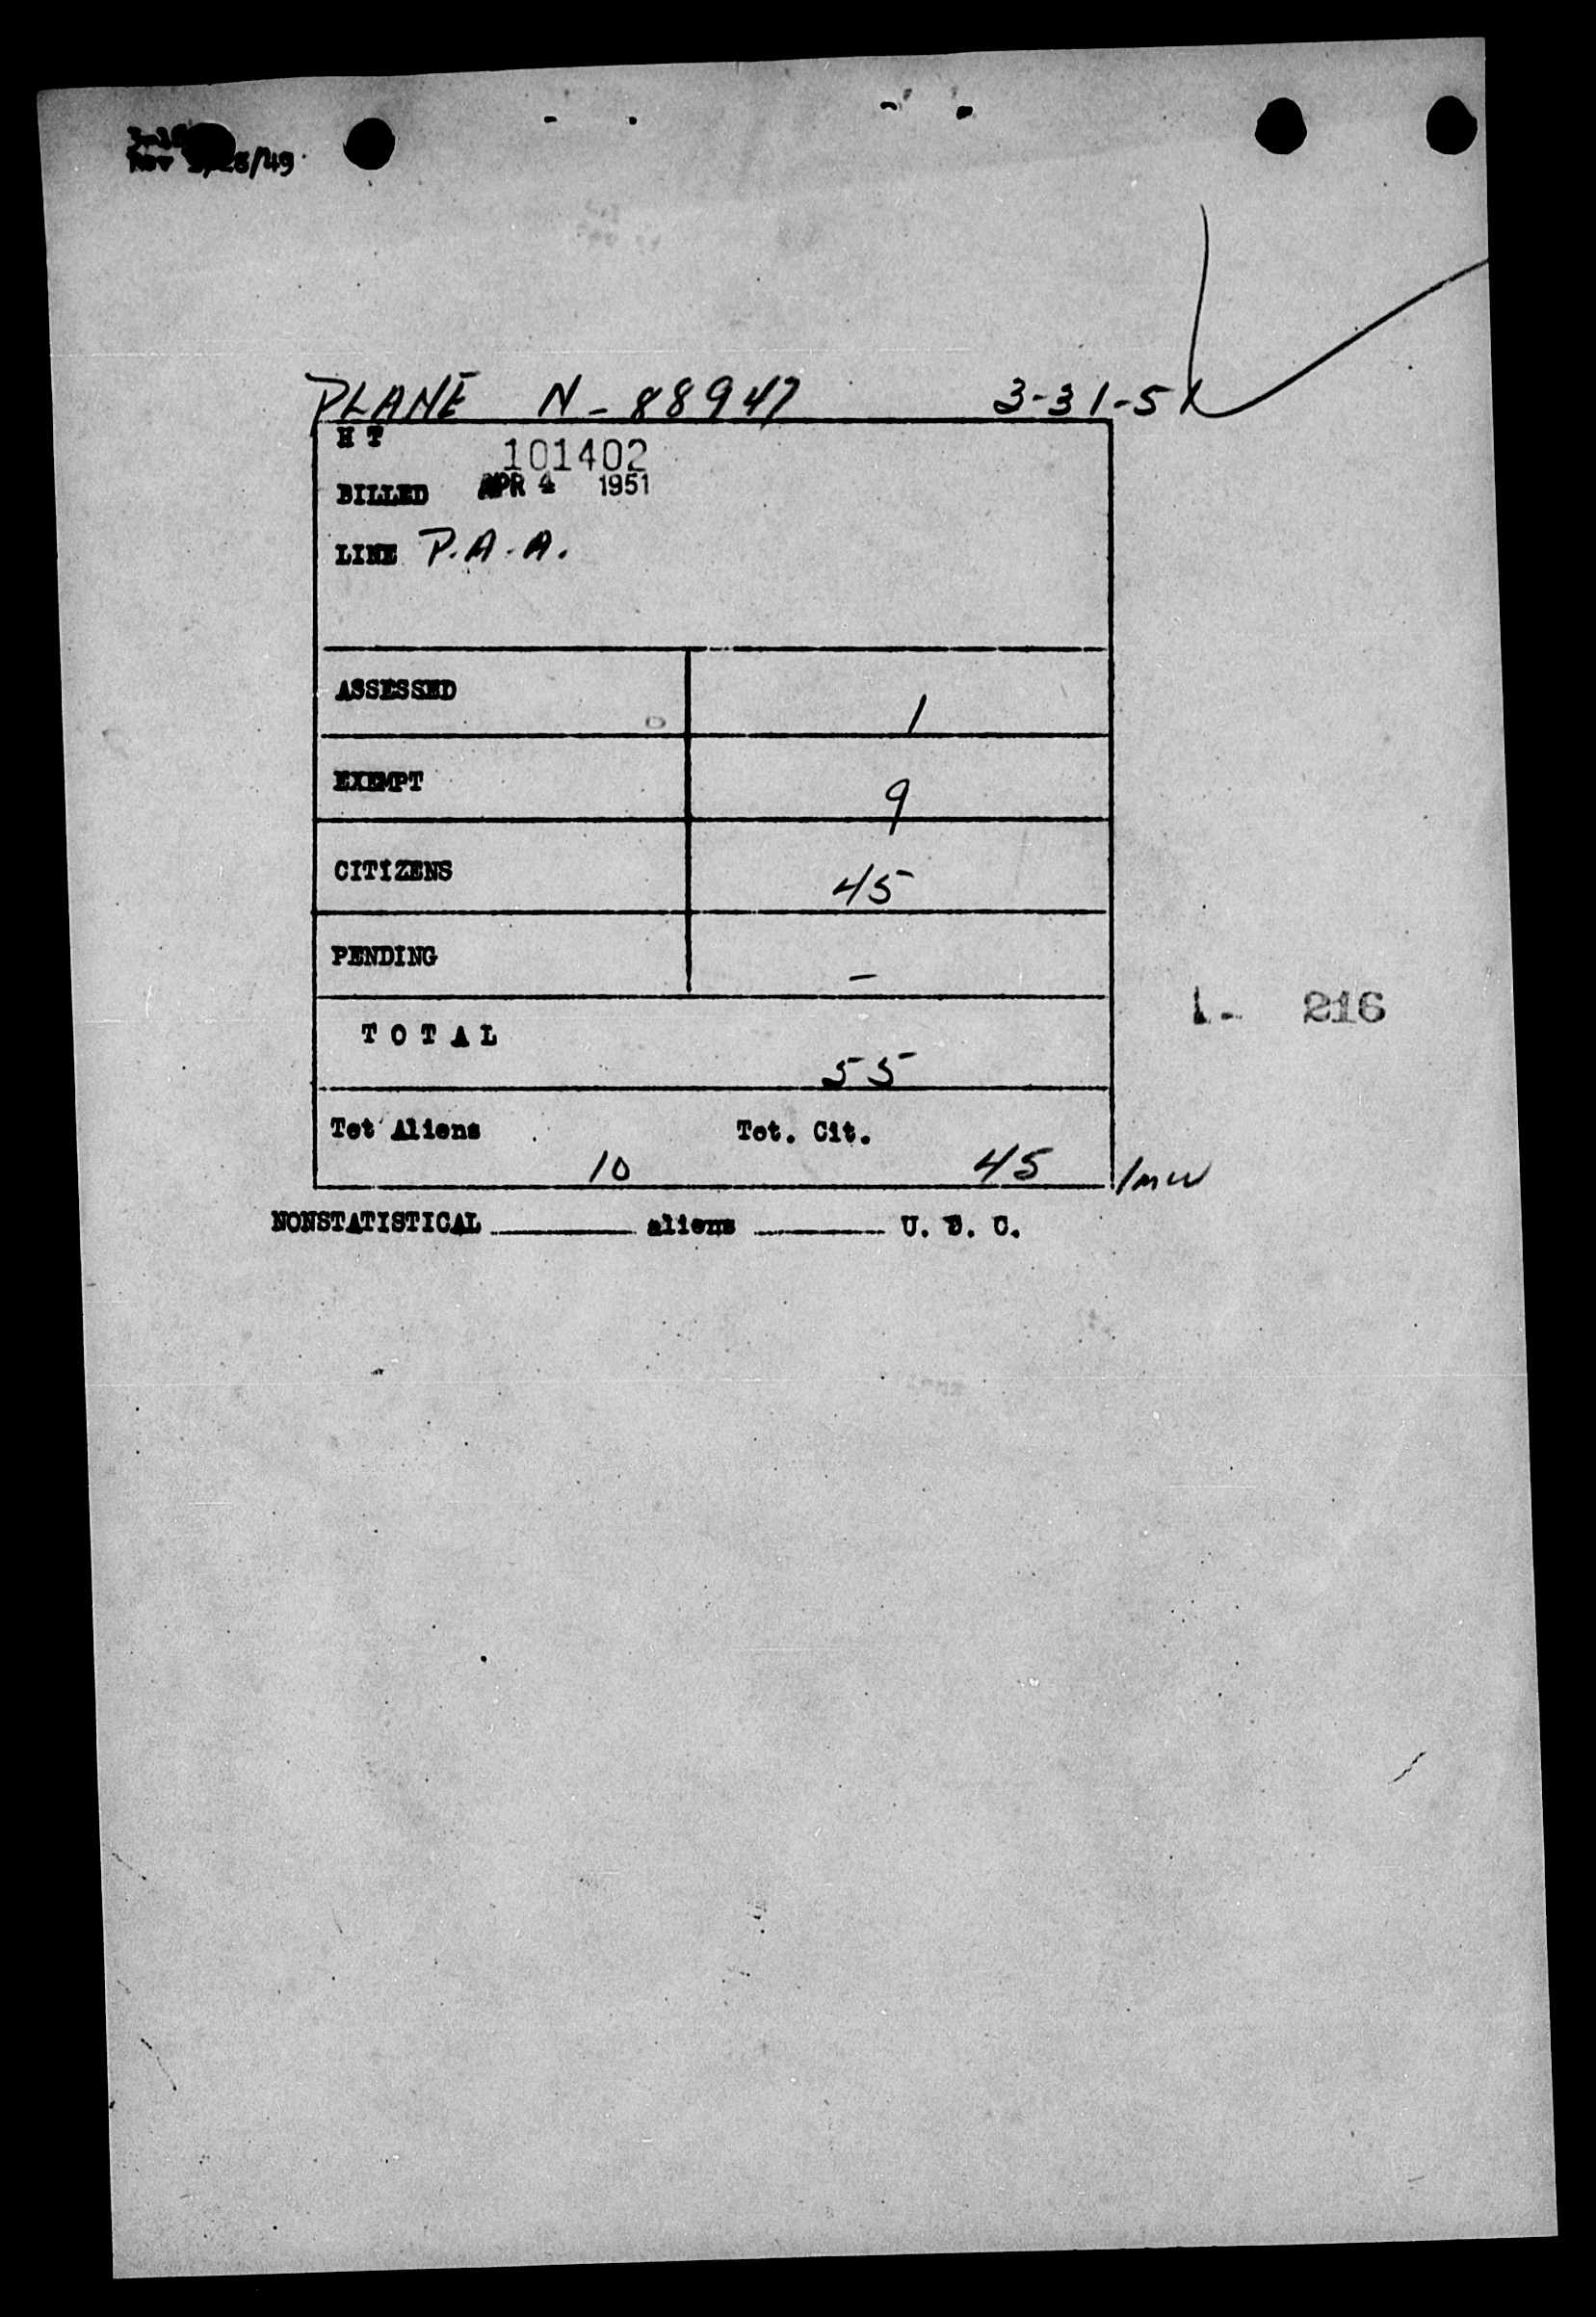 /49
PLANE N-88947 3-31-51
H T 101402
BILLED APR 4 1951
LINE P.A.A.
ASSESSED 1
EXEMPT 9
CITIZENS 45
PENDING –
1- 216
T O T A L 55
Tot Aliens 10 Tot. Cit. 45 /mw
NONSTATISTICAL ______ aliens ______ U. S. C.